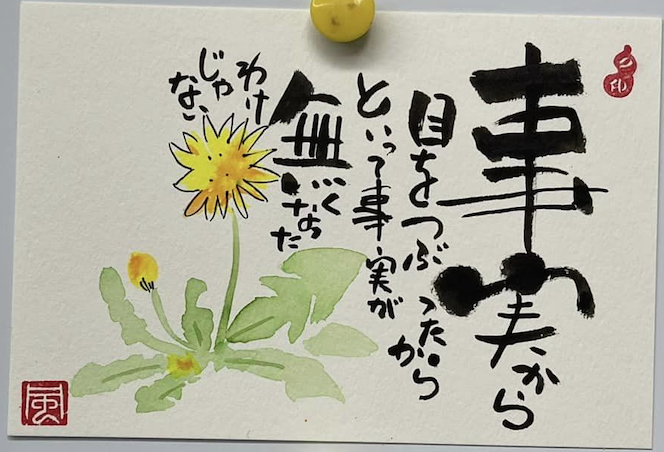 事実から
目をつぶったから
といって事実が
無くなった
わけ
じゃ
ない
風